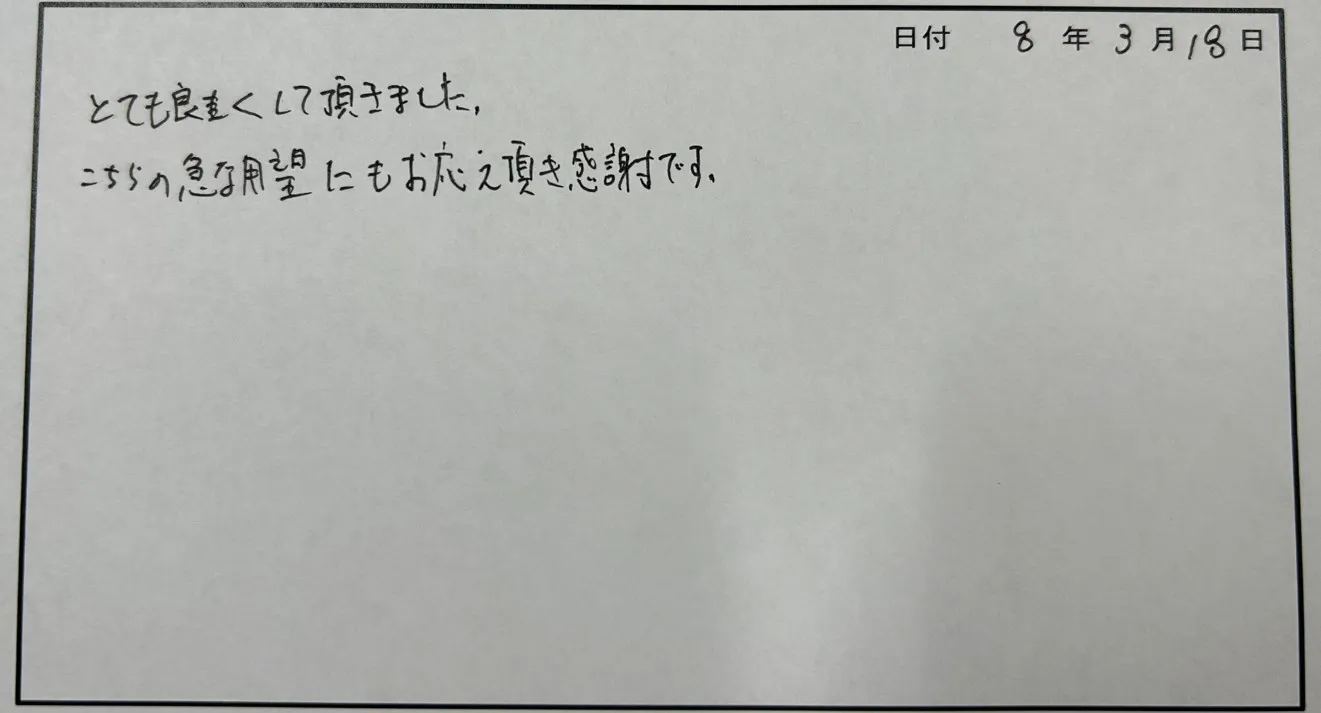 日付 8年3月18日
とても良くして頂きました。
こちらの急な用望にもお応え頂き感謝です。